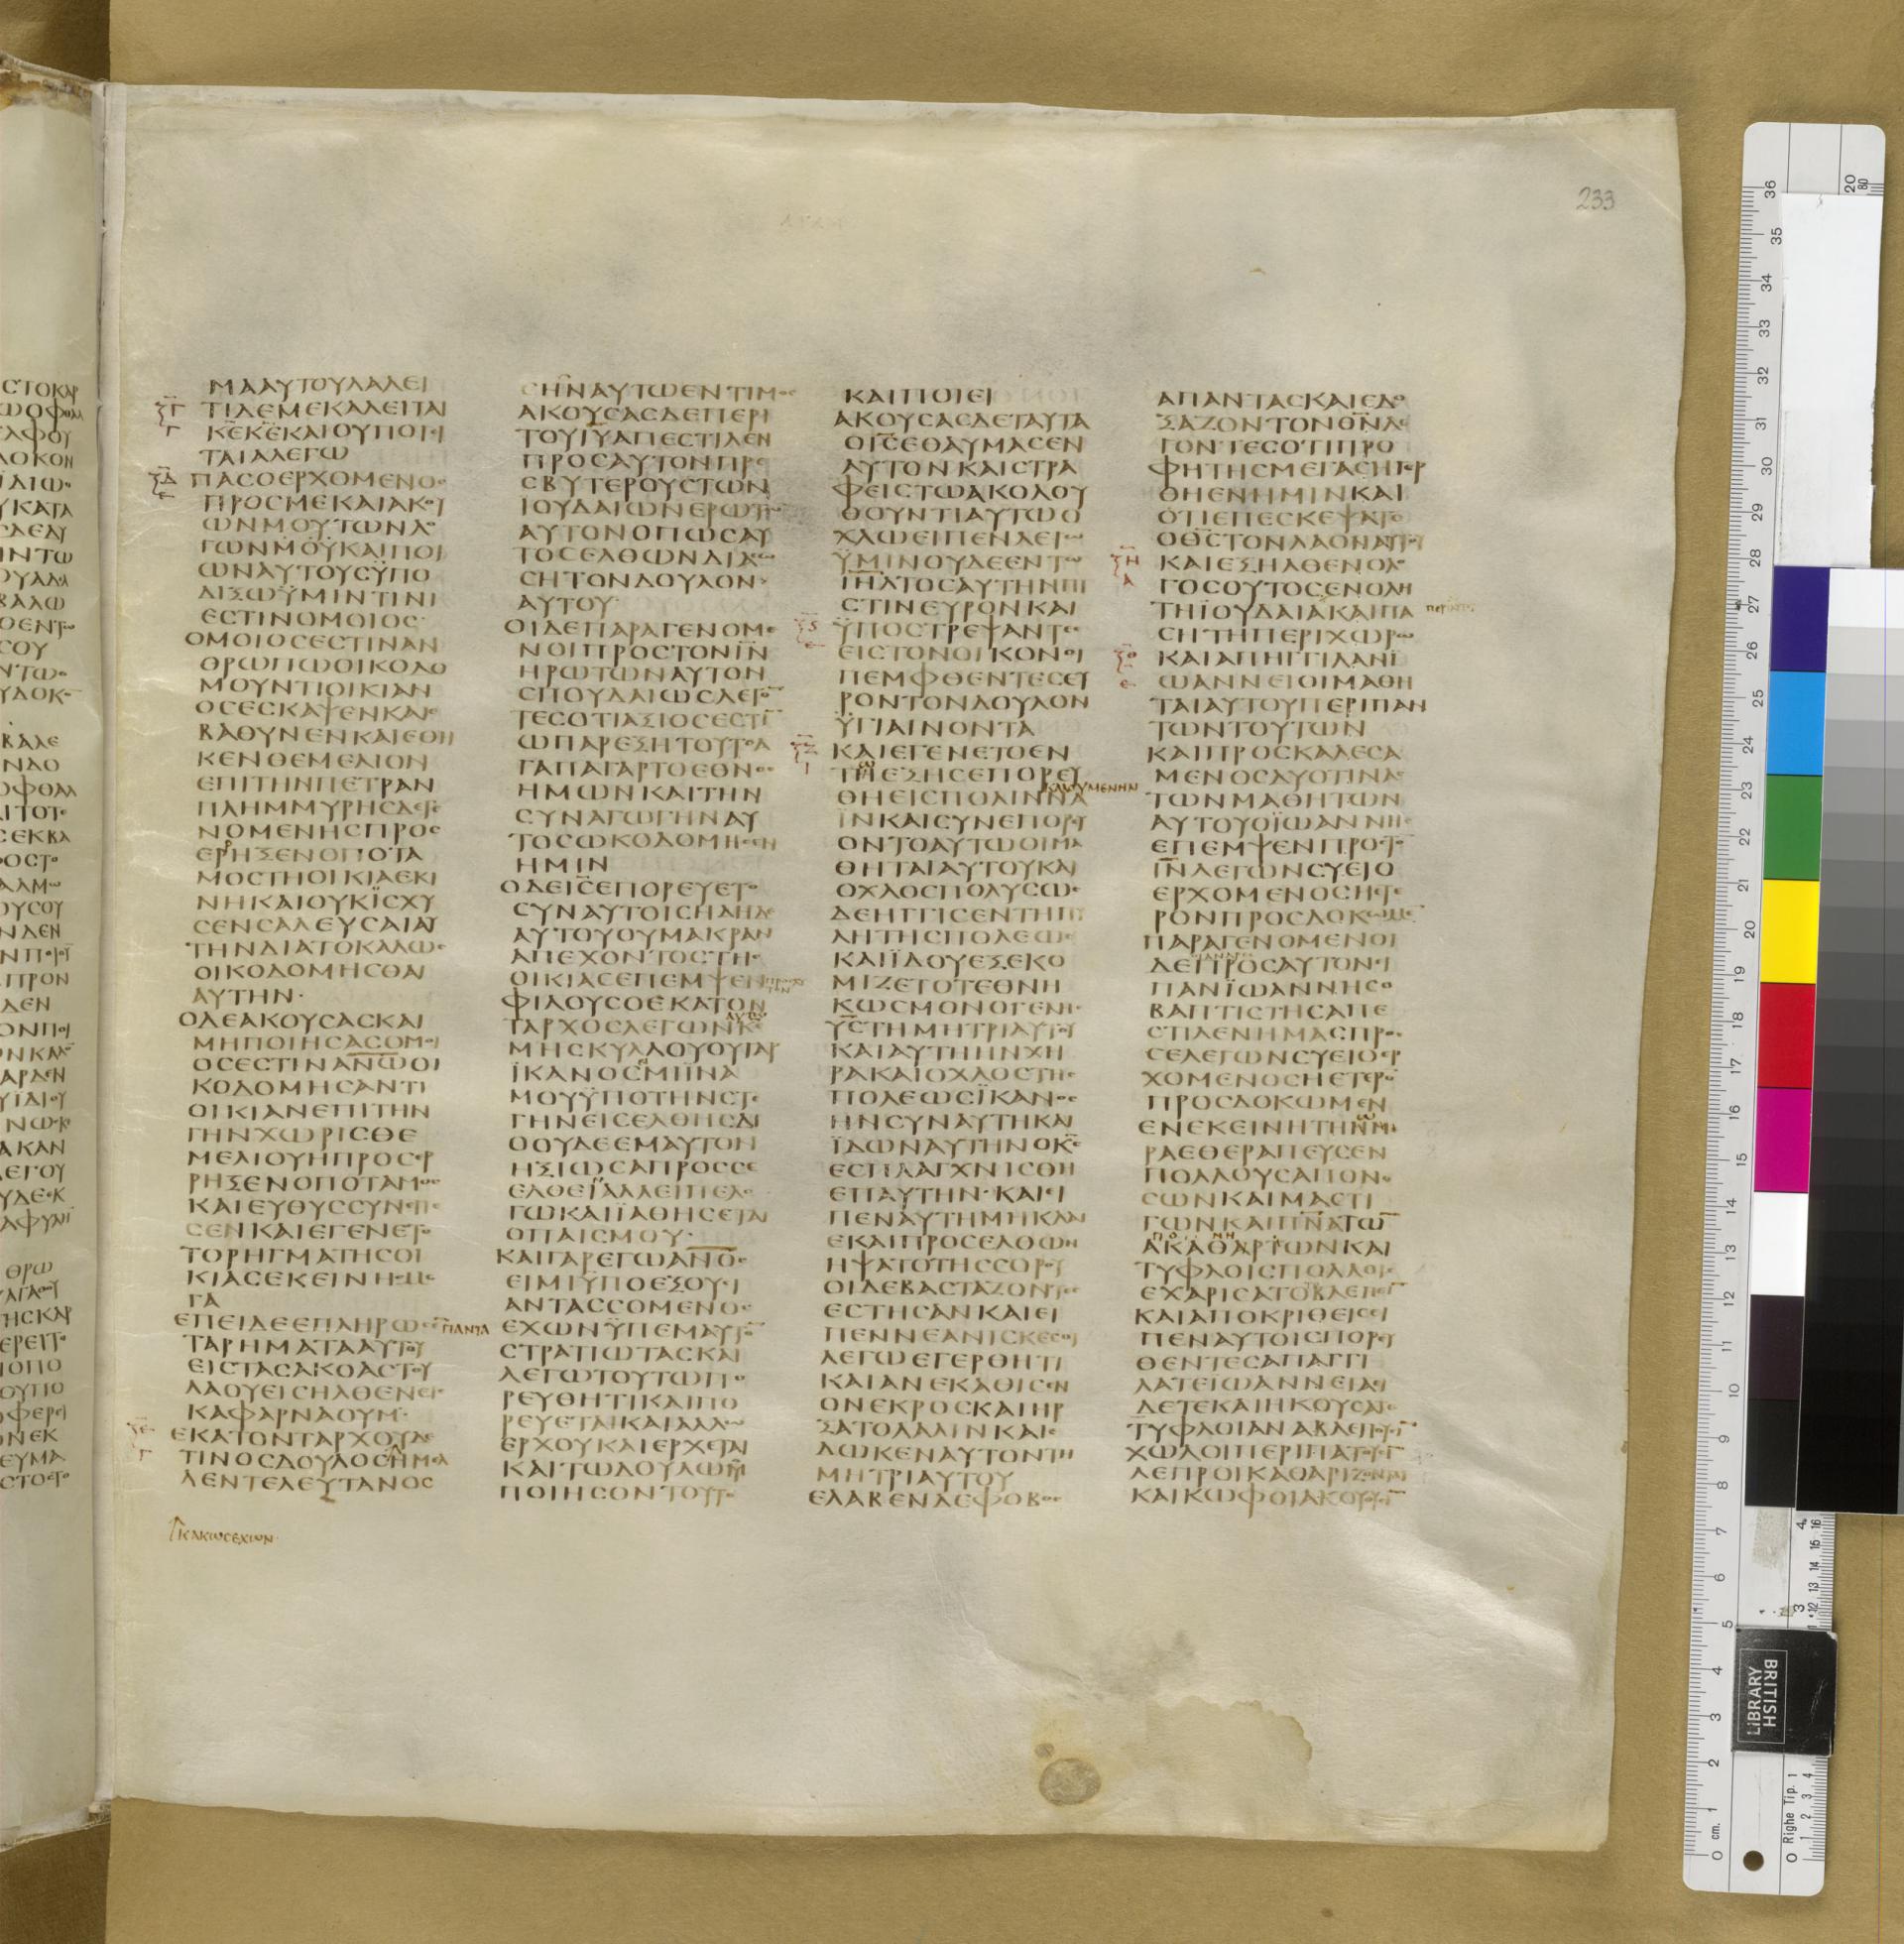 233
ΜΑΑΥΤΟΥΛΑΛΕΙ
ΤΙΔΕΜΕΚΑΛΕΙΤΑΙ
ΚΕΚΕΚΑΙΟΥΠΟΙΕΙ
ΤΑΙΑΛΕΓΩ
ΠΑΣΟΕΡΧΟΜΕΝΟΣ
ΠΡΟΣΜΕΚΑΙΑΚΟΥ
ΩΝΜΟΥΤΩΝΛΟ
ΓΩΝΜΟΥΚΑΙΠΟΙ
ΩΝΑΥΤΟΥΣΫΠΟ
ΔΙΞΩΫΜΙΝΤΙΝΙ
ΕΣΤΙΝΟΜΟΙΟΣ
ΟΜΟΙΟΣΕΣΤΙΝΑΝ
ΘΡΩΠΩΟΙΚΟΔΟ
ΜΟΥΝΤΙΟΙΚΙΑΝ
ΟΣΕΣΚΑΨΕΝΚΑΙ
ΒΑΘΥΝΕΝΚΑΙΕΘΗ
ΚΕΝΘΕΜΕΛΙΟΝ
ΕΠΙΤΗΝΠΕΤΡΑΝ
ΠΛΗΜΜΥΡΗΣΔΕΓΕ
ΝΟΜΕΝΗΣΠΡΟΣ
ΕΡΗΞΕΝΟΠΟΤΑ
ΜΟΣΤΗΟΙΚΙΑΕΚΙ
ΝΗΚΑΙΟΥΚΪΣΧΥ
ΣΕΝΣΑΛΕΥΣΑΙΑΥ
ΤΗΝΔΙΑΤΟΚΑΛΩΣ
ΟΙΚΟΔΟΜΗΣΘΑΙ
ΑΥΤΗΝ·
ΟΔΕΑΚΟΥΣΑΣΚΑΙ
ΜΗΠΟΙΗΣΑΣΟΜΟΙ
ΟΣΕΣΤΙΝΑΝΩΟΙ
ΚΟΔΟΜΗΣΑΝΤΙ
ΟΙΚΙΑΝΕΠΙΤΗΝ
ΓΗΝΧΩΡΙΣΘΕ
ΜΕΛΙΟΥΗΠΡΟΣΕΡ
ΡΗΞΕΝΟΠΟΤΑΜΟΣ
ΚΑΙΕΥΘΥΣΣΥΝΕΠΕ
ΣΕΝΚΑΙΕΓΕΝΕΤΟ
ΤΟΡΗΓΜΑΤΗΣΟΙ
ΚΙΑΣΕΚΕΙΝΗΣΜΕ
ΓΑ
ΕΠΕΙΔΕΕΠΛΗΡΩΣΕ ΠΑΝΤΑ
ΤΑΡΗΜΑΤΑΑΥΤΟΥ
ΕΙΣΤΑΣΑΚΟΑΣΤΟΥ
ΛΑΟΥΕΙΣΗΛΘΕΝΕΙΣ
ΚΑΦΑΡΝΑΟΥΜ·
ΕΚΑΤΟΝΤΑΡΧΟΥΔΕ
ΤΙΝΟΣΔΟΥΛΟΣΗΜΕΛ
ΛΕΝΤΕΛΕΥΤΑΝΟΣ
ΚΑΚΩΣΕΧΩΝ
ΣΗΝΑΥΤΩΕΝΤΙΜΟΣ
ΑΚΟΥΣΑΣΔΕΠΕΡΙ
ΤΟΥΙΥΑΠΕΣΤΙΛΕΝ
ΠΡΟΣΑΥΤΟΝΠΡΕ
ΣΒΥΤΕΡΟΥΣΤΩΝ
ΙΟΥΔΑΙΩΝΕΡΩΤΩΝ
ΑΥΤΟΝΟΠΩΣΑΥ
ΤΟΣΕΛΘΩΝΔΙΑΣΩ
ΣΗΤΟΝΔΟΥΛΟΝ
ΑΥΤΟΥ
ΟΙΔΕΠΑΡΑΓΕΝΟΜΕ
ΝΟΙΠΡΟΣΤΟΝΙΝ
ΗΡΩΤΩΝΑΥΤΟΝ
ΣΠΟΥΔΑΙΩΣΛΕΓΟΝ
ΤΕΣΟΤΙΑΞΙΟΣΕΣΤΙ
ΩΠΑΡΕΞΗΤΟΥΤΟΑ
ΓΑΠΑΓΑΡΤΟΕΘΝΟΣ
ΗΜΩΝΚΑΙΤΗΝ
ΣΥΝΑΓΩΓΗΝΑΥ
ΤΟΣΩΚΟΔΟΜΗΣΕΝ
ΗΜΙΝ
ΟΔΕΙΣΕΠΟΡΕΥΕΤΟ
ΣΥΝΑΥΤΟΙΣΗΔΗΔΕ
ΑΥΤΟΥΟΥΜΑΚΡΑΝ
ΑΠΕΧΟΝΤΟΣΤΗΣ
ΟΙΚΙΑΣΕΠΕΜΨΕΝ
ΦΙΛΟΥΣΟΕΚΑΤΟΝ
ΤΑΡΧΟΣΛΕΓΩΝΚΕ
ΜΗΣΚΥΛΛΟΥΟΥΓΑΡ
ΪΚΑΝΟΣΕΙΜΙΪΝΑ
ΜΟΥΫΠΟΤΗΝΣΤΕ
ΓΗΝΕΙΣΕΛΘΗΣΔΙ
ΟΟΥΔΕΕΜΑΥΤΟΝ
ΗΞΙΩΣΑΠΡΟΣΣΕ
ΕΛΘΕΙΝΑΛΛΕΙΠΕΛΟ
ΓΩΚΑΙΪΑΘΗΣΕΤΑΙ
ΟΠΑΙΣΜΟΥ·
ΚΑΙΓΑΡΕΓΩΑΝΟΣ
ΕΙΜΙΫΠΟΕΞΟΥΣΙ
ΑΝΤΑΣΣΟΜΕΝΟΣ
ΕΧΩΝΫΠΕΜΑΥΤΟΝ
ΣΤΡΑΤΙΩΤΑΣΚΑΙ
ΛΕΓΩΤΟΥΤΩΠΟ
ΡΕΥΘΗΤΙΚΑΙΠΟ
ΡΕΥΕΤΑΙΚΑΙΑΛΛΩ
ΕΡΧΟΥΚΑΙΕΡΧΕΤΑΙ
ΚΑΙΤΩΔΟΥΛΩΜΟΥ
ΠΟΙΗΣΟΝΤΟΥΤΟ
ΚΑΙΠΟΙΕΙ
ΑΚΟΥΣΑΣΔΕΤΑΥΤΑ
ΟΙΣΕΘΑΥΜΑΣΕΝ
ΑΥΤΟΝΚΑΙΣΤΡΑ
ΦΕΙΣΤΩΑΚΟΛΟΥ
ΘΟΥΝΤΙΑΥΤΩΟ
ΧΛΩΕΙΠΕΝΛΕΓΩ
ΫΜΙΝΟΥΔΕΕΝΤΩ
ΙΗΛΤΟΣΑΥΤΗΝΠΙ
ΣΤΙΝΕΥΡΟΝΚΑΙ
ΫΠΟΣΤΡΕΨΑΝΤΕΣ
ΕΙΣΤΟΝΟΙΚΟΝΟΙ
ΠΕΜΦΘΕΝΤΕΣΕΥ
ΡΟΝΤΟΝΔΟΥΛΟΝ
ΫΓΙΑΙΝΟΝΤΑ
ΚΑΙΕΓΕΝΕΤΟΕΝ
ΤΗΕΞΗΣΕΠΟΡΕΥ
ΘΗΕΙΣΠΟΛΙΝΝΑ ΚΑΛΟΥΜΕΝΗΝ
ΙΝΚΑΙΣΥΝΕΠΟΡΕΥ
ΟΝΤΟΑΥΤΩΟΙΜΑ
ΘΗΤΑΙΑΥΤΟΥΚΑΙ
ΟΧΛΟΣΠΟΛΥΣΩΣ
ΔΕΗΓΓΙΣΕΝΤΗΠΥ
ΛΗΤΗΣΠΟΛΕΩΣ
ΚΑΙΪΔΟΥΕΞΕΚΟ
ΜΙΖΕΤΟΤΕΘΝΗ
ΚΩΣΜΟΝΟΓΕΝΗΣ
ΥΣΤΗΜΗΤΡΙΑΥΤΟΥ
ΚΑΙΑΥΤΗΗΝΧΗ
ΡΑΚΑΙΟΧΛΟΣΤΗΣ
ΠΟΛΕΩΣΪΚΑΝΟΣ
ΗΝΣΥΝΑΥΤΗΚΑΙ
ΪΔΩΝΑΥΤΗΝΟΚΣ
ΕΣΠΛΑΓΧΝΙΣΘΗ
ΕΠΑΥΤΗΝ·ΚΑΙΕΙ
ΠΕΝΑΥΤΗΜΗΚΛΑΙ
ΕΚΑΙΠΡΟΣΕΛΘΩΝ
ΗΨΑΤΟΤΗΣΣΟΡΟΥ
ΟΙΔΕΒΑΣΤΑΖΟΝΤΕΣ
ΕΣΤΗΣΑΝΚΑΙΕΙ
ΠΕΝΝΕΑΝΙΣΚΕΣΟΙ
ΛΕΓΩΕΓΕΡΘΗΤΙ
ΚΑΙΑΝΕΚΑΘΙΣΕΝ
ΟΝΕΚΡΟΣΚΑΙΗΡ
ΞΑΤΟΛΑΛΙΝΚΑΙΕ
ΔΩΚΕΝΑΥΤΟΝΤΗ
ΜΗΤΡΙΑΥΤΟΥ
ΕΛΑΒΕΝΔΕΦΟΒΟΣ
ΑΠΑΝΤΑΣΚΑΙΕΔΟ
ΞΑΖΟΝΤΟΝΘΝΛΕ
ΓΟΝΤΕΣΟΤΙΠΡΟ
ΦΗΤΗΣΜΕΓΑΣΗΓΕΡ
ΘΗΕΝΗΜΙΝΚΑΙ
ΟΤΙΕΠΕΣΚΕΨΑΤΟ
ΟΘΣΤΟΝΛΑΟΝΑΥΤΟΥ
ΚΑΙΕΞΗΛΘΕΝΟΛΟ
ΓΟΣΟΥΤΟΣΕΝΟΛΗ
ΤΗΪΟΥΔΑΙΑΚΑΙΠΑ
ΣΗΤΗΠΕΡΙΧΩΡΩ
ΚΑΙΑΠΗΓΓΙΛΑΝΪ
ΩΑΝΝΕΙΟΙΜΑΘΗ
ΤΑΙΑΥΤΟΥΠΕΡΙΠΑΝ
ΤΩΝΤΟΥΤΩΝ
ΚΑΙΠΡΟΣΚΑΛΕΣΑ
ΜΕΝΟΣΔΥΟΤΙΝΑΣ
ΤΩΝΜΑΘΗΤΩΝ
ΑΥΤΟΥΟΪΩΑΝΝΗΣ
ΕΠΕΜΨΕΝΠΡΟΣΤΟΝ
ΙΝΛΕΓΩΝΣΥΕΙΟ
ΕΡΧΟΜΕΝΟΣΗΕΤΕ
ΡΟΝΠΡΟΣΔΟΚΩΜΕΝ
ΠΑΡΑΓΕΝΟΜΕΝΟΙ
ΔΕΠΡΟΣΑΥΤΟΝΕΙ
ΠΑΝΪΩΑΝΝΗΣΟ
ΒΑΠΤΙΣΤΗΣΑΠΕ
ΣΤΙΛΕΝΗΜΑΣΠΡΟΣ
ΣΕΛΕΓΩΝΣΥΕΙΟΕΡ
ΧΟΜΕΝΟΣΗΕΤΕΡΟΝ
ΠΡΟΣΔΟΚΩΜΕΝ
ΕΝΕΚΕΙΝΗΤΗΗΜΕ
ΡΑΕΘΕΡΑΠΕΥΣΕΝ
ΠΟΛΛΟΥΣΑΠΟΝΟ
ΣΩΝΚΑΙΜΑΣΤΙ
ΓΩΝΚΑΙΠΝΑΤΩΝ
ΑΚΑΘΑΡΤΩΝΚΑΙ
ΤΥΦΛΟΙΣΠΟΛΛΟΙΣ
ΕΧΑΡΙΣΑΤΟΒΛΕΠΕΙΝ
ΚΑΙΑΠΟΚΡΙΘΕΙΣΕΙ
ΠΕΝΑΥΤΟΙΣΠΟΡΕΥ
ΘΕΝΤΕΣΑΠΑΓΓΙ
ΛΑΤΕΙΩΑΝΝΕΙΑΕΙ
ΔΕΤΕΚΑΙΗΚΟΥΣΑΤΕ
ΤΥΦΛΟΙΑΝΑΒΛΕΠΟΥΣΙΝ
ΧΩΛΟΙΠΕΡΙΠΑΤΟΥΣΙΝ
ΛΕΠΡΟΙΚΑΘΑΡΙΖΟΝΤΑΙ
ΚΑΙΚΩΦΟΙΑΚΟΥΟΥΣΙΝ